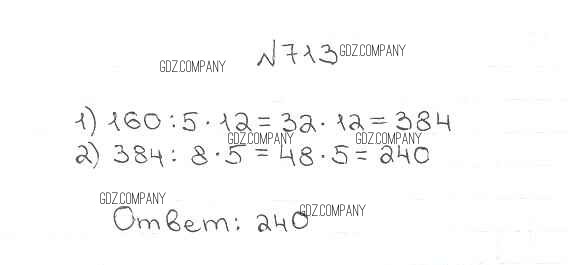 №713 GDZ.COMPANY
GDZ.COMPANY
1) 160 : 5 · 12 = 32 · 12 = 384
GDZ.COMPANY GDZ.COMPANY
2) 384 : 8 · 5 = 48 · 5 = 240
GDZ.COMPANY
Ответ: 240 GDZ.COMPANY